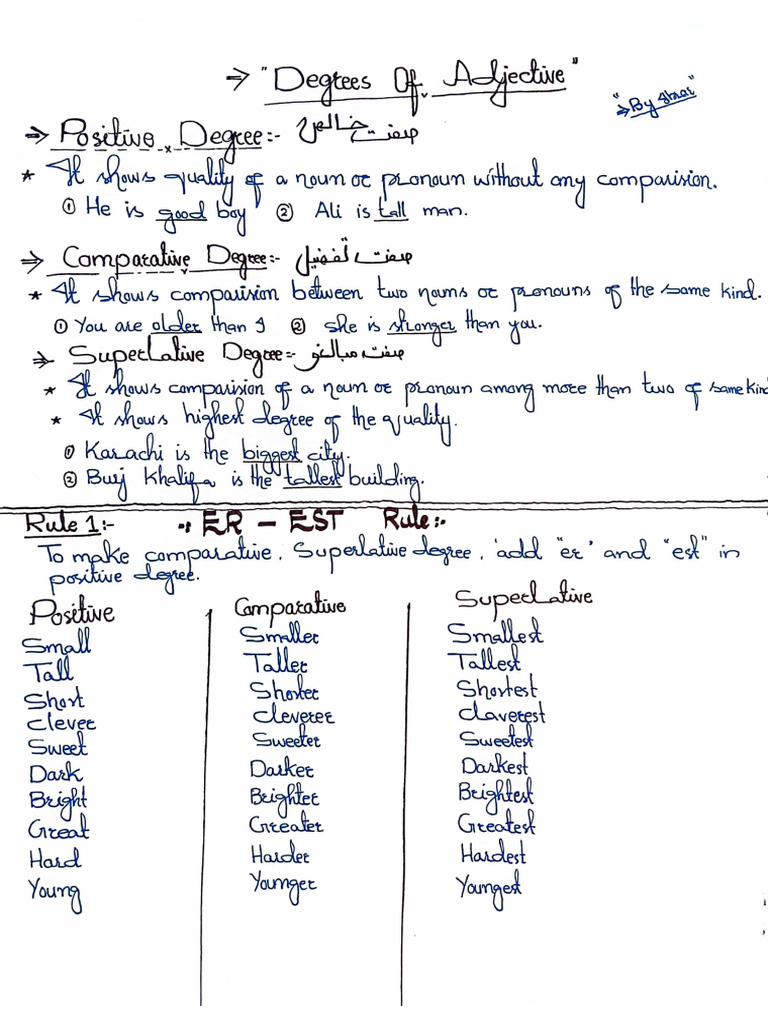 ⇒ "Degrees Of Adjective"
"⇒ By
⇒ Positive Degree:- صفت خالص
* It shows quality of a noun or pronoun without any comparision.
① He is good boy ② Ali is tall man.
⇒ Comparative Degree:- صفت تفضیل
* It shows comparision between two nouns or pronouns of the same kind.
① You are older than I ② she is stronger than you.
⇒ Superlative Degree:- صفت مبالغہ
* It shows comparision of a noun or pronoun among more than two of same kind
* It shows highest degree of the quality.
① Karachi is the biggest city.
② Burj Khalifa is the tallest building.
Rule 1:- ·: ER – EST Rule:·
To make comparative, Superlative degree, 'add "er' and "est" in
positive degree.
Positive Comparative Superlative
Small Smaller Smallest
Tall Taller Tallest
Short Shorter Shortest
Clever Cleverer Claverest
Sweet Sweeter Sweetest
Dark Darker Darkest
Bright Brighter Brightest
Great Greater Greatest
Hard Harder Hardest
Young Younger Youngest